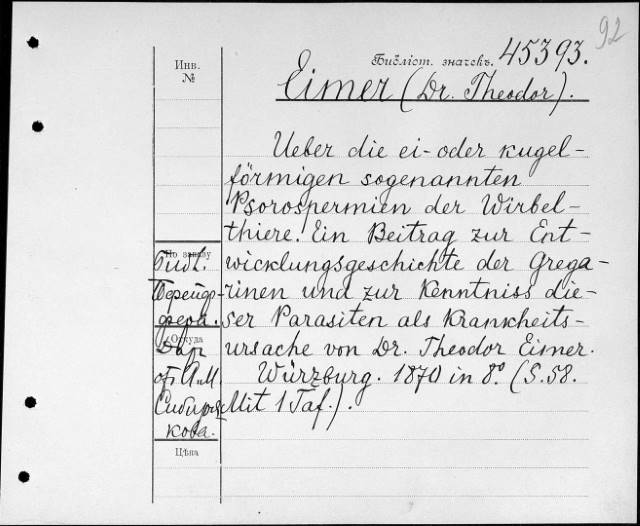 92
Инв.
№
Библіот. значекъ. 45393.
Eimer (Dr. Theodor).
Ueber die ei- oder kugel-
förmigen sogenannten
Psorospermien der Wirbel-
thiere. Ein Beitrag zur Ent-
wicklungsgeschichte der Grega-
rinen und zur Kenntniss die-
ser Parasiten als Krankheits-
ursache von Dr. Theodor Eimer.
Würzburg. 1870 in 8° (S. 58.
Mit 1 Taf.).
По заказу
Откуда
Даръ
отъ А.М.
Сибиря-
кова.
Цѣна